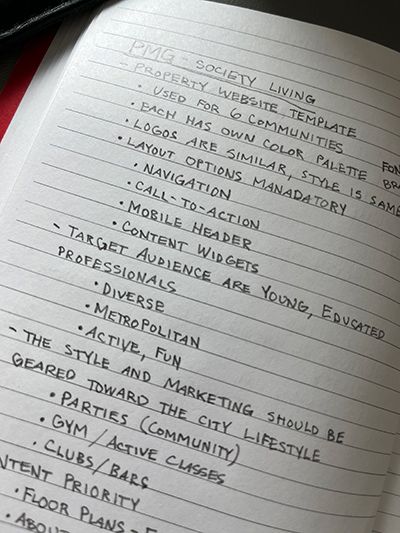 PMG - SOCIETY LIVING
- PROPERTY WEBSITE TEMPLATE
• USED FOR 6 COMMUNITIES
• EACH HAS OWN COLOR PALETTE
• LOGOS ARE SIMILAR, STYLE IS SAME
• LAYOUT OPTIONS MANADATORY
• NAVIGATION
• CALL-TO-ACTION
• MOBILE HEADER
• CONTENT WIDGETS
- TARGET AUDIENCE ARE YOUNG, EDUCATED
PROFESSIONALS
• DIVERSE
• METROPOLITAN
• ACTIVE, FUN
- THE STYLE AND MARKETING SHOULD BE
GEARED TOWARD THE CITY LIFESTYLE
• PARTIES (COMMUNITY)
• GYM / ACTIVE CLASSES
• CLUBS/BARS
PRIORITY
• FLOOR PLANS -